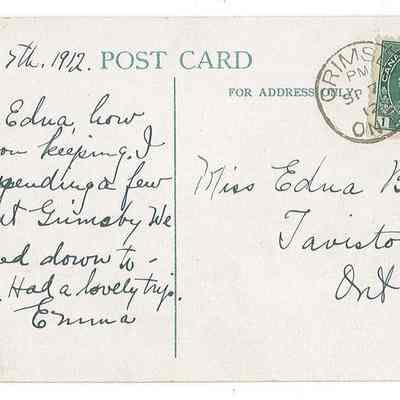 7th, 1912. POST CARD
FOR ADDRESS ONLY
GRIMSB
PM
SP 7
12
ON
CANA
1
Edna, how
keeping. I
pending a few
Grimsby We
ed down to -
Had a lovely trip.
Emma
Miss Edna B
Tavisto
Ont